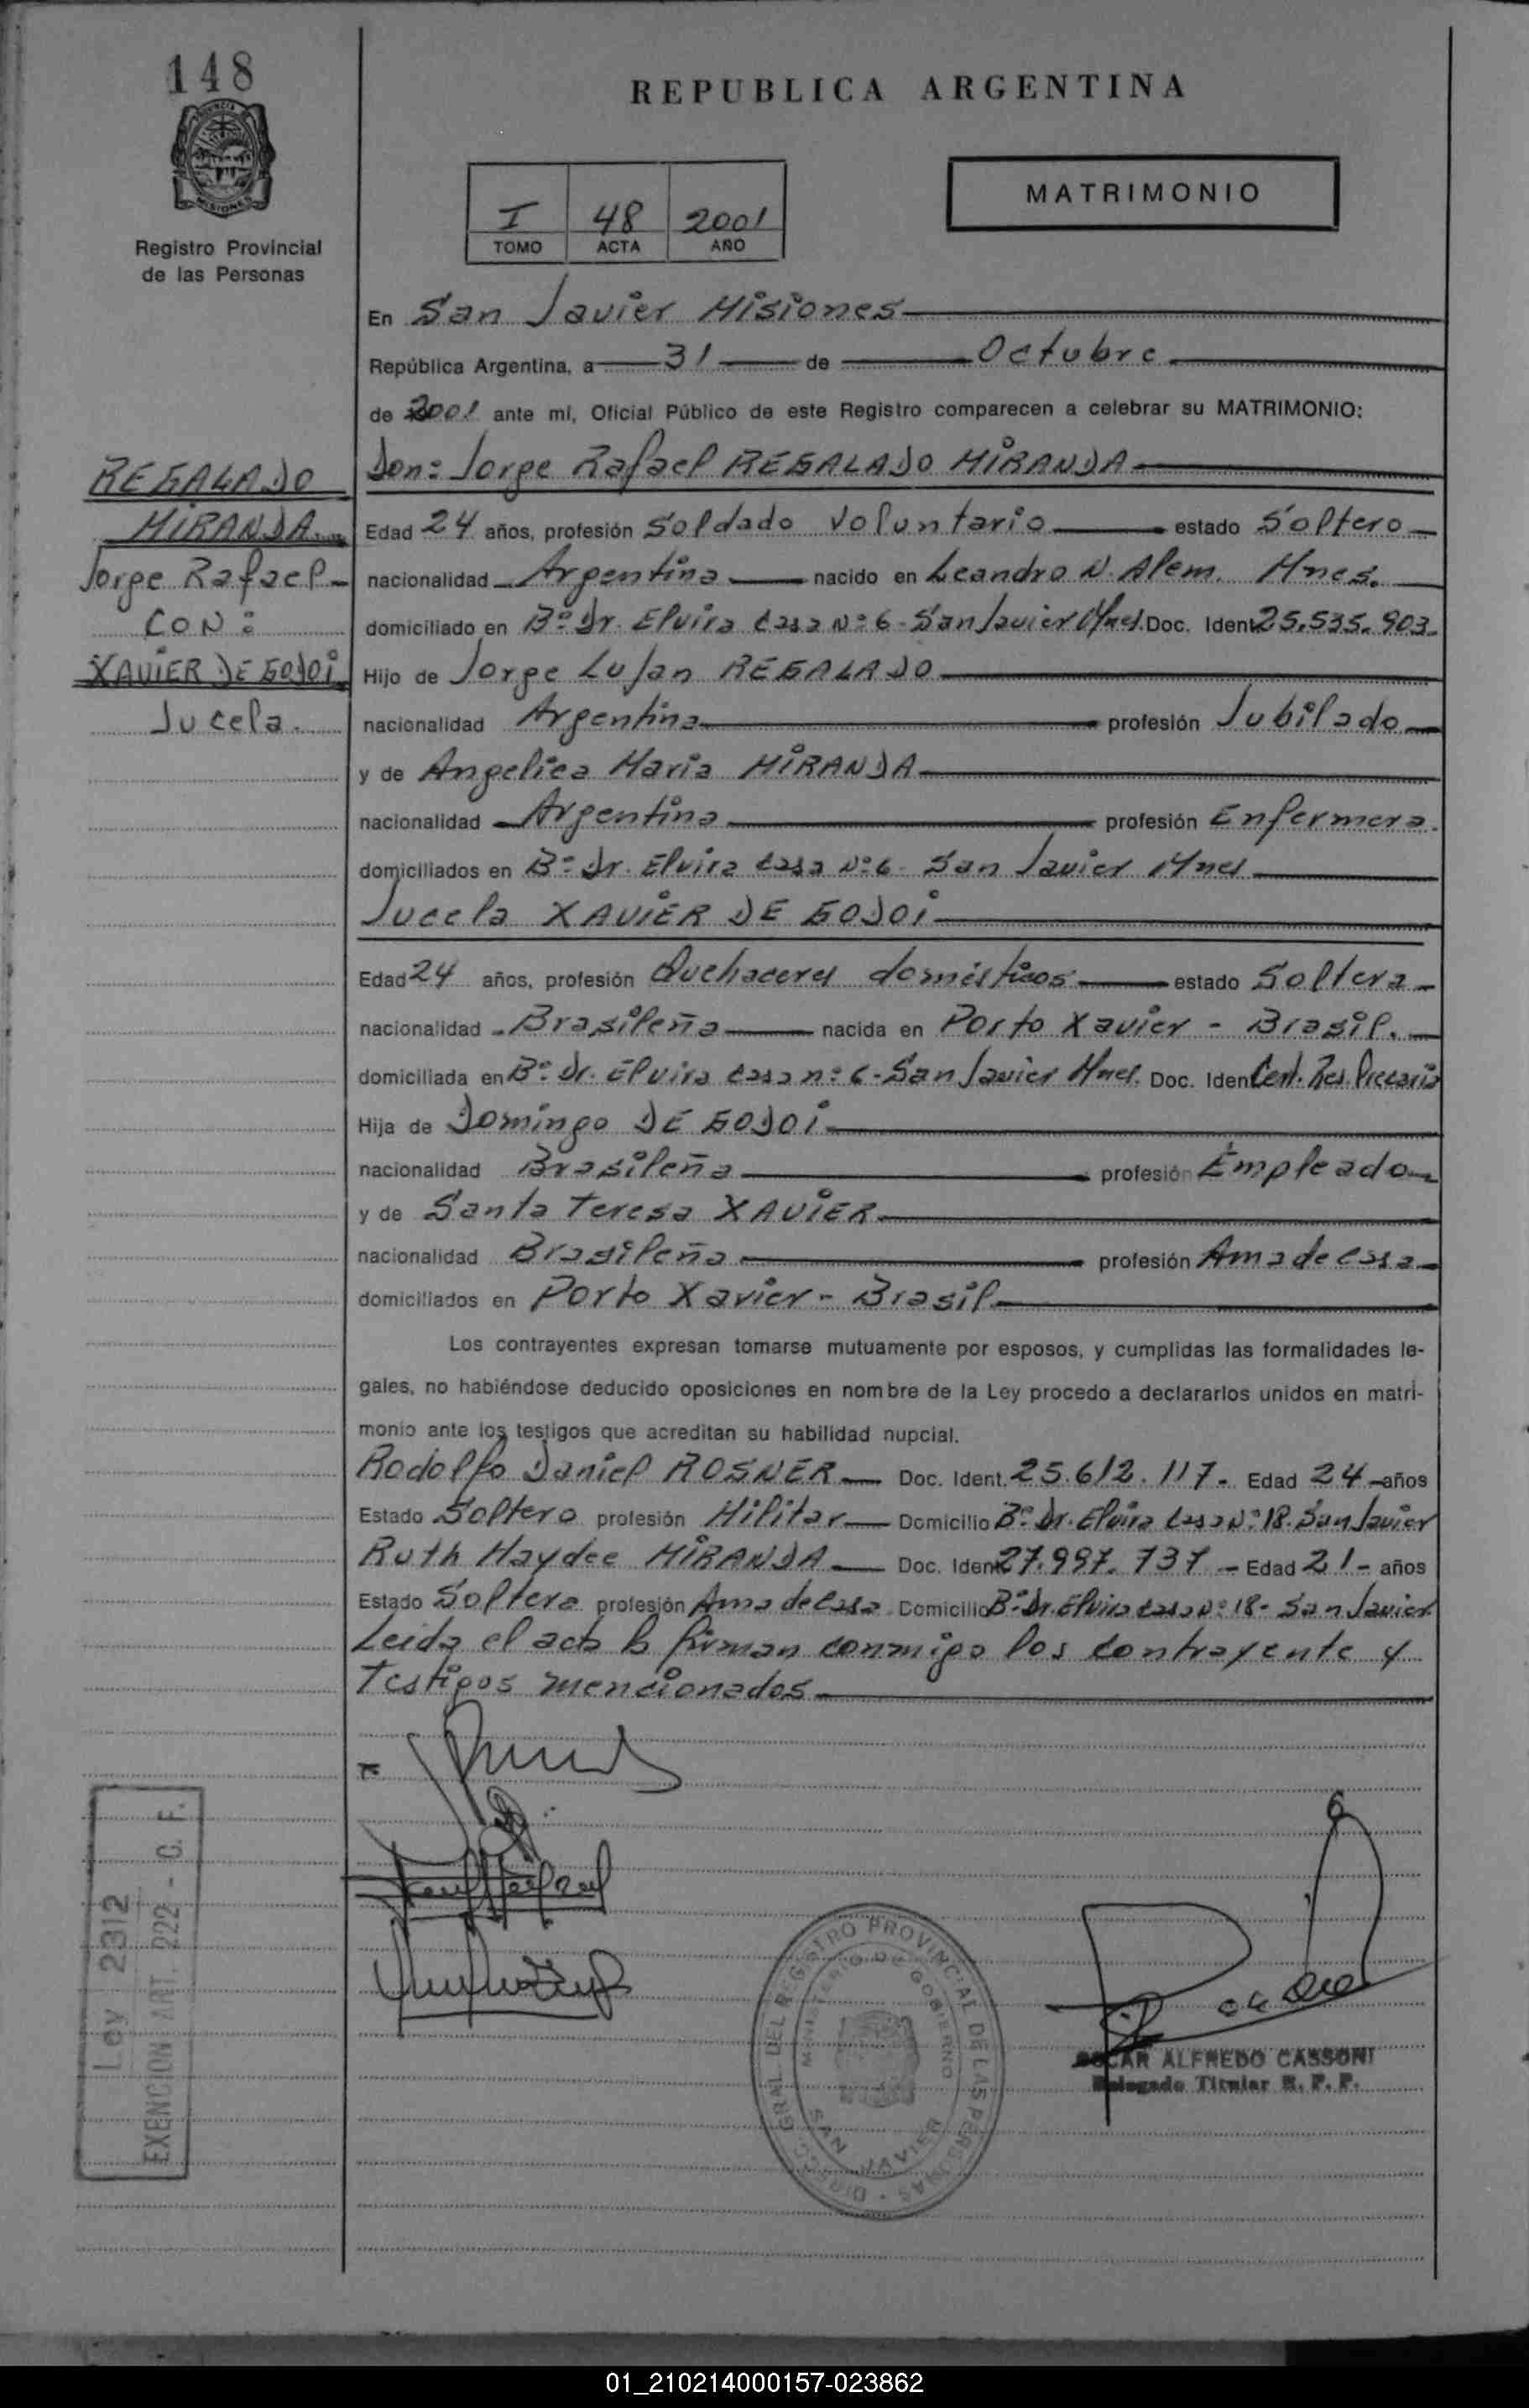 148
REPUBLICA ARGENTINA
PROVINCIA
MISIONES
Registro Provincial
de las Personas
I 48 2001
TOMO ACTA AÑO
MATRIMONIO
En San Javier Misiones
República Argentina, a 31 de Octubre
de 2001 ante mi, Oficial Público de este Registro comparecen a celebrar su MATRIMONIO:
REGALADO
MIRANDA.
Jorge Rafael
CON:
XAVIER DE GODOI
Jucela.
Don: Jorge Rafael REGALADO MIRANDA
Edad 24 años, profesión Soldado Voluntario estado Soltero
nacionalidad Argentina nacido en Leandro N. Alem. Mnes.
domiciliado en Bº Dr. Elvira Casa Nº 6 - San Javier Mnes. Doc. Ident 25.535.903.
Hijo de Jorge Lujan REGALADO
nacionalidad Argentina profesión Jubilado
y de Angelica Maria MIRANDA
nacionalidad Argentina profesión Enfermera.
domiciliados en Bº Dr. Elvira Casa Nº 6 - San Javier Mnes
Jucela XAVIER DE GODOI
Edad 24 años, profesión Quehaceres domésticos estado Soltera
nacionalidad Brasileña nacida en Porto Xavier - Brasil.
domiciliada en Bº Dr. Elvira Casa nº 6 - San Javier Mnes. Doc. Iden Cert. Res. Precaria
Hija de Domingo DE GODOI
nacionalidad Brasileña profesión Empleado
y de Santa Teresa XAVIER
nacionalidad Brasileña profesión Ama de casa
domiciliados en Porto Xavier - Brasil
Los contrayentes expresan tomarse mutuamente por esposos, y cumplidas las formalidades le-
gales, no habiéndose deducido oposiciones en nombre de la Ley procedo a declararlos unidos en matri-
monio ante los testigos que acreditan su habilidad nupcial.
Rodolfo Daniel ROSNER Doc. Ident. 25.612.117- Edad 24 años
Estado Soltero profesión Militar Domicilio Bº Dr. Elvira Casa Nº 18. San Javier
Ruth Haydee MIRANDA Doc. Ident 27.997.737 - Edad 21 - años
Estado Soltera profesión Ama de Casa Domicilio Bº Dr. Elvira Casa Nº 18 - San Javier
Leida el acta la firman conmigo los contrayente y
Testigos mencionados
Ley 2312
EXENCION ART. 222 - C. F.
DIRECC. GRAL. DEL REGISTRO PROVINCIAL DE LAS PERSONAS
MINISTERIO DE GOBIERNO
SAN JAVIER
OSCAR ALFREDO CASSONI
Delegado Titular R. P. P.
01_210214000157-023862